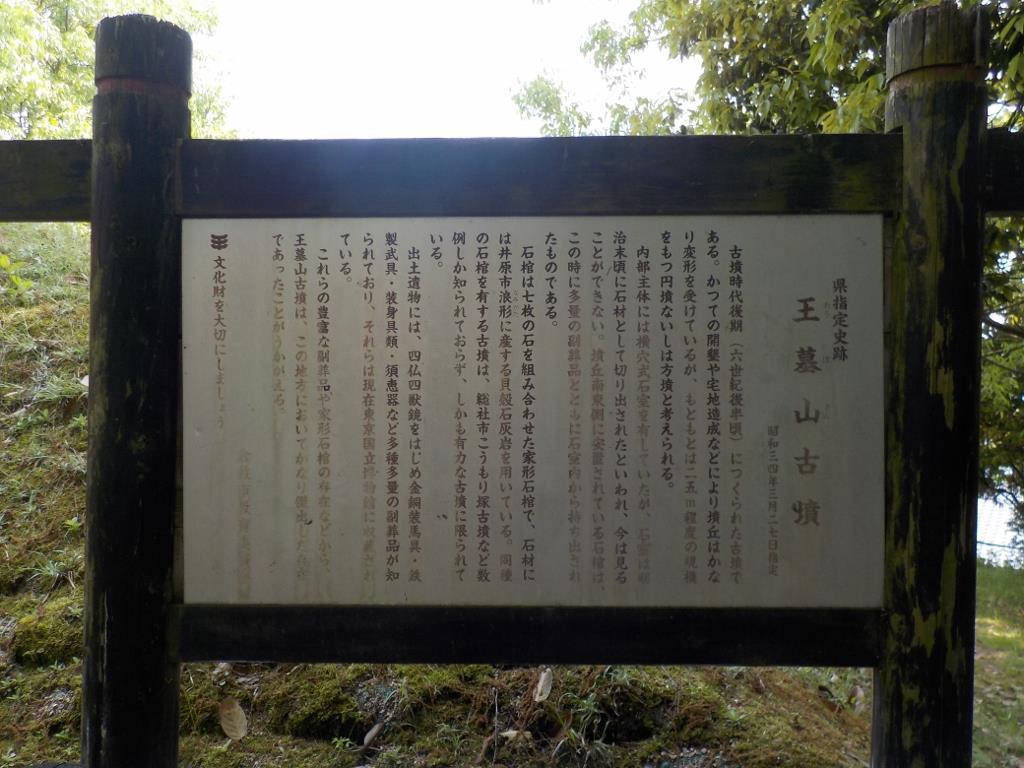 県指定史跡
王墓山古墳
昭和三四年三月二七日指定
古墳時代後期（六世紀後半頃）につくられた古墳で
ある。かつての開墾や宅地造成などにより墳丘はかな
り変形を受けているが、もともとは二五ｍ程度の規模
をもつ円墳ないしは方墳と考えられる。
内部主体には横穴式石室を有していたが、石室は明
治末頃に石材として切り出されたといわれ、今は見る
ことができない。墳丘南東側に安置されている石棺は、
この時に多量の副葬品とともに石室内から持ち出され
たものである。
石棺は七枚の石を組み合わせた家形石棺で、石材に
は井原市浪形に産する貝殻石灰岩を用いている。同種
の石棺を有する古墳は、総社市こうもり塚古墳など数
例しか知られておらず、しかも有力な古墳に限られて
いる。
出土遺物には、四仏四獣鏡をはじめ金銅装馬具・鉄
製武具・装身具類・須恵器など多種多量の副葬品が知
られており、それらは現在東京国立博物館に収蔵され
ている。
これらの豊富な副葬品や家形石棺の存在などから、
王墓山古墳は、この地方においてかなり傑出した
であったことがうかがえる。
文化財を大切にしましょう
倉敷市教育委員会